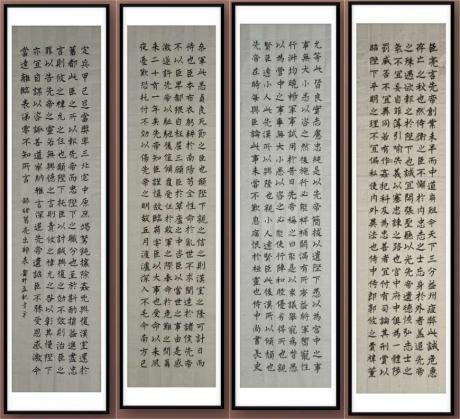 臣亮言先帝創業未半而中道崩殂今天下三分益州疲弊此誠危急
存亡之秋也然侍衛之臣不懈於內忠志之士忘身於外者蓋追先帝
之殊遇欲報之於陛下也誠宜開張聖聽以光先帝遺德恢弘志士之
氣不宜妄自菲薄引喻失義以塞忠諫之路也宮中府中俱為一體陟
罰臧否不宜異同若有作姦犯科及為忠善者宜付有司論其刑賞以
昭陛下平明之理不宜偏私使內外異法也侍中侍郎郭攸之費禕董
允等此皆良實志慮忠純是以先帝簡拔以遺陛下愚以為宮中之事
事無大小悉以咨之然後施行必能裨補闕漏有所廣益將軍向寵性
行淑均曉暢軍事試用於昔日先帝稱之曰能是以眾議舉寵為督愚
以為營中之事事無大小悉以咨之必能使行陣和睦優劣得所也親
賢臣遠小人此先漢所以興隆也親小人遠賢臣此後漢所以傾頹也
先帝在時每與臣論此事未嘗不歎息痛恨於桓靈也侍中尚書長史
參軍此悉貞良死節之臣也願陛下親之信之則漢室之隆可計日而
待也臣本布衣躬耕於南陽苟全性命於亂世不求聞達於諸侯先帝
不以臣卑鄙猥自枉屈三顧臣於草廬之中諮臣以當世之事由是感
激遂許先帝以驅馳後值傾覆受任於敗軍之際奉命於危難之間爾
來二十有一年矣先帝知臣謹慎故臨崩寄臣以大事也受命以來夙
夜憂歎恐託付不效以傷先帝之明故五月渡瀘深入不毛今南方已
定兵甲已足當獎率三軍北定中原庶竭駑鈍攘除姦凶興復漢室還於
舊都此臣之所以報先帝而忠陛下之職分也至於斟酌損益進盡忠
言則攸之禕允之任也願陛下託臣以討賊興復之效不效則治臣之
罪以告先帝之靈若無興德之言則責攸之禕允之咎以彰其慢陛下
亦宜自謀以咨諏善道察納雅言深追先帝遺詔臣不勝受恩感激今
當遠離臨表涕零不知所言 諸葛亮出師表